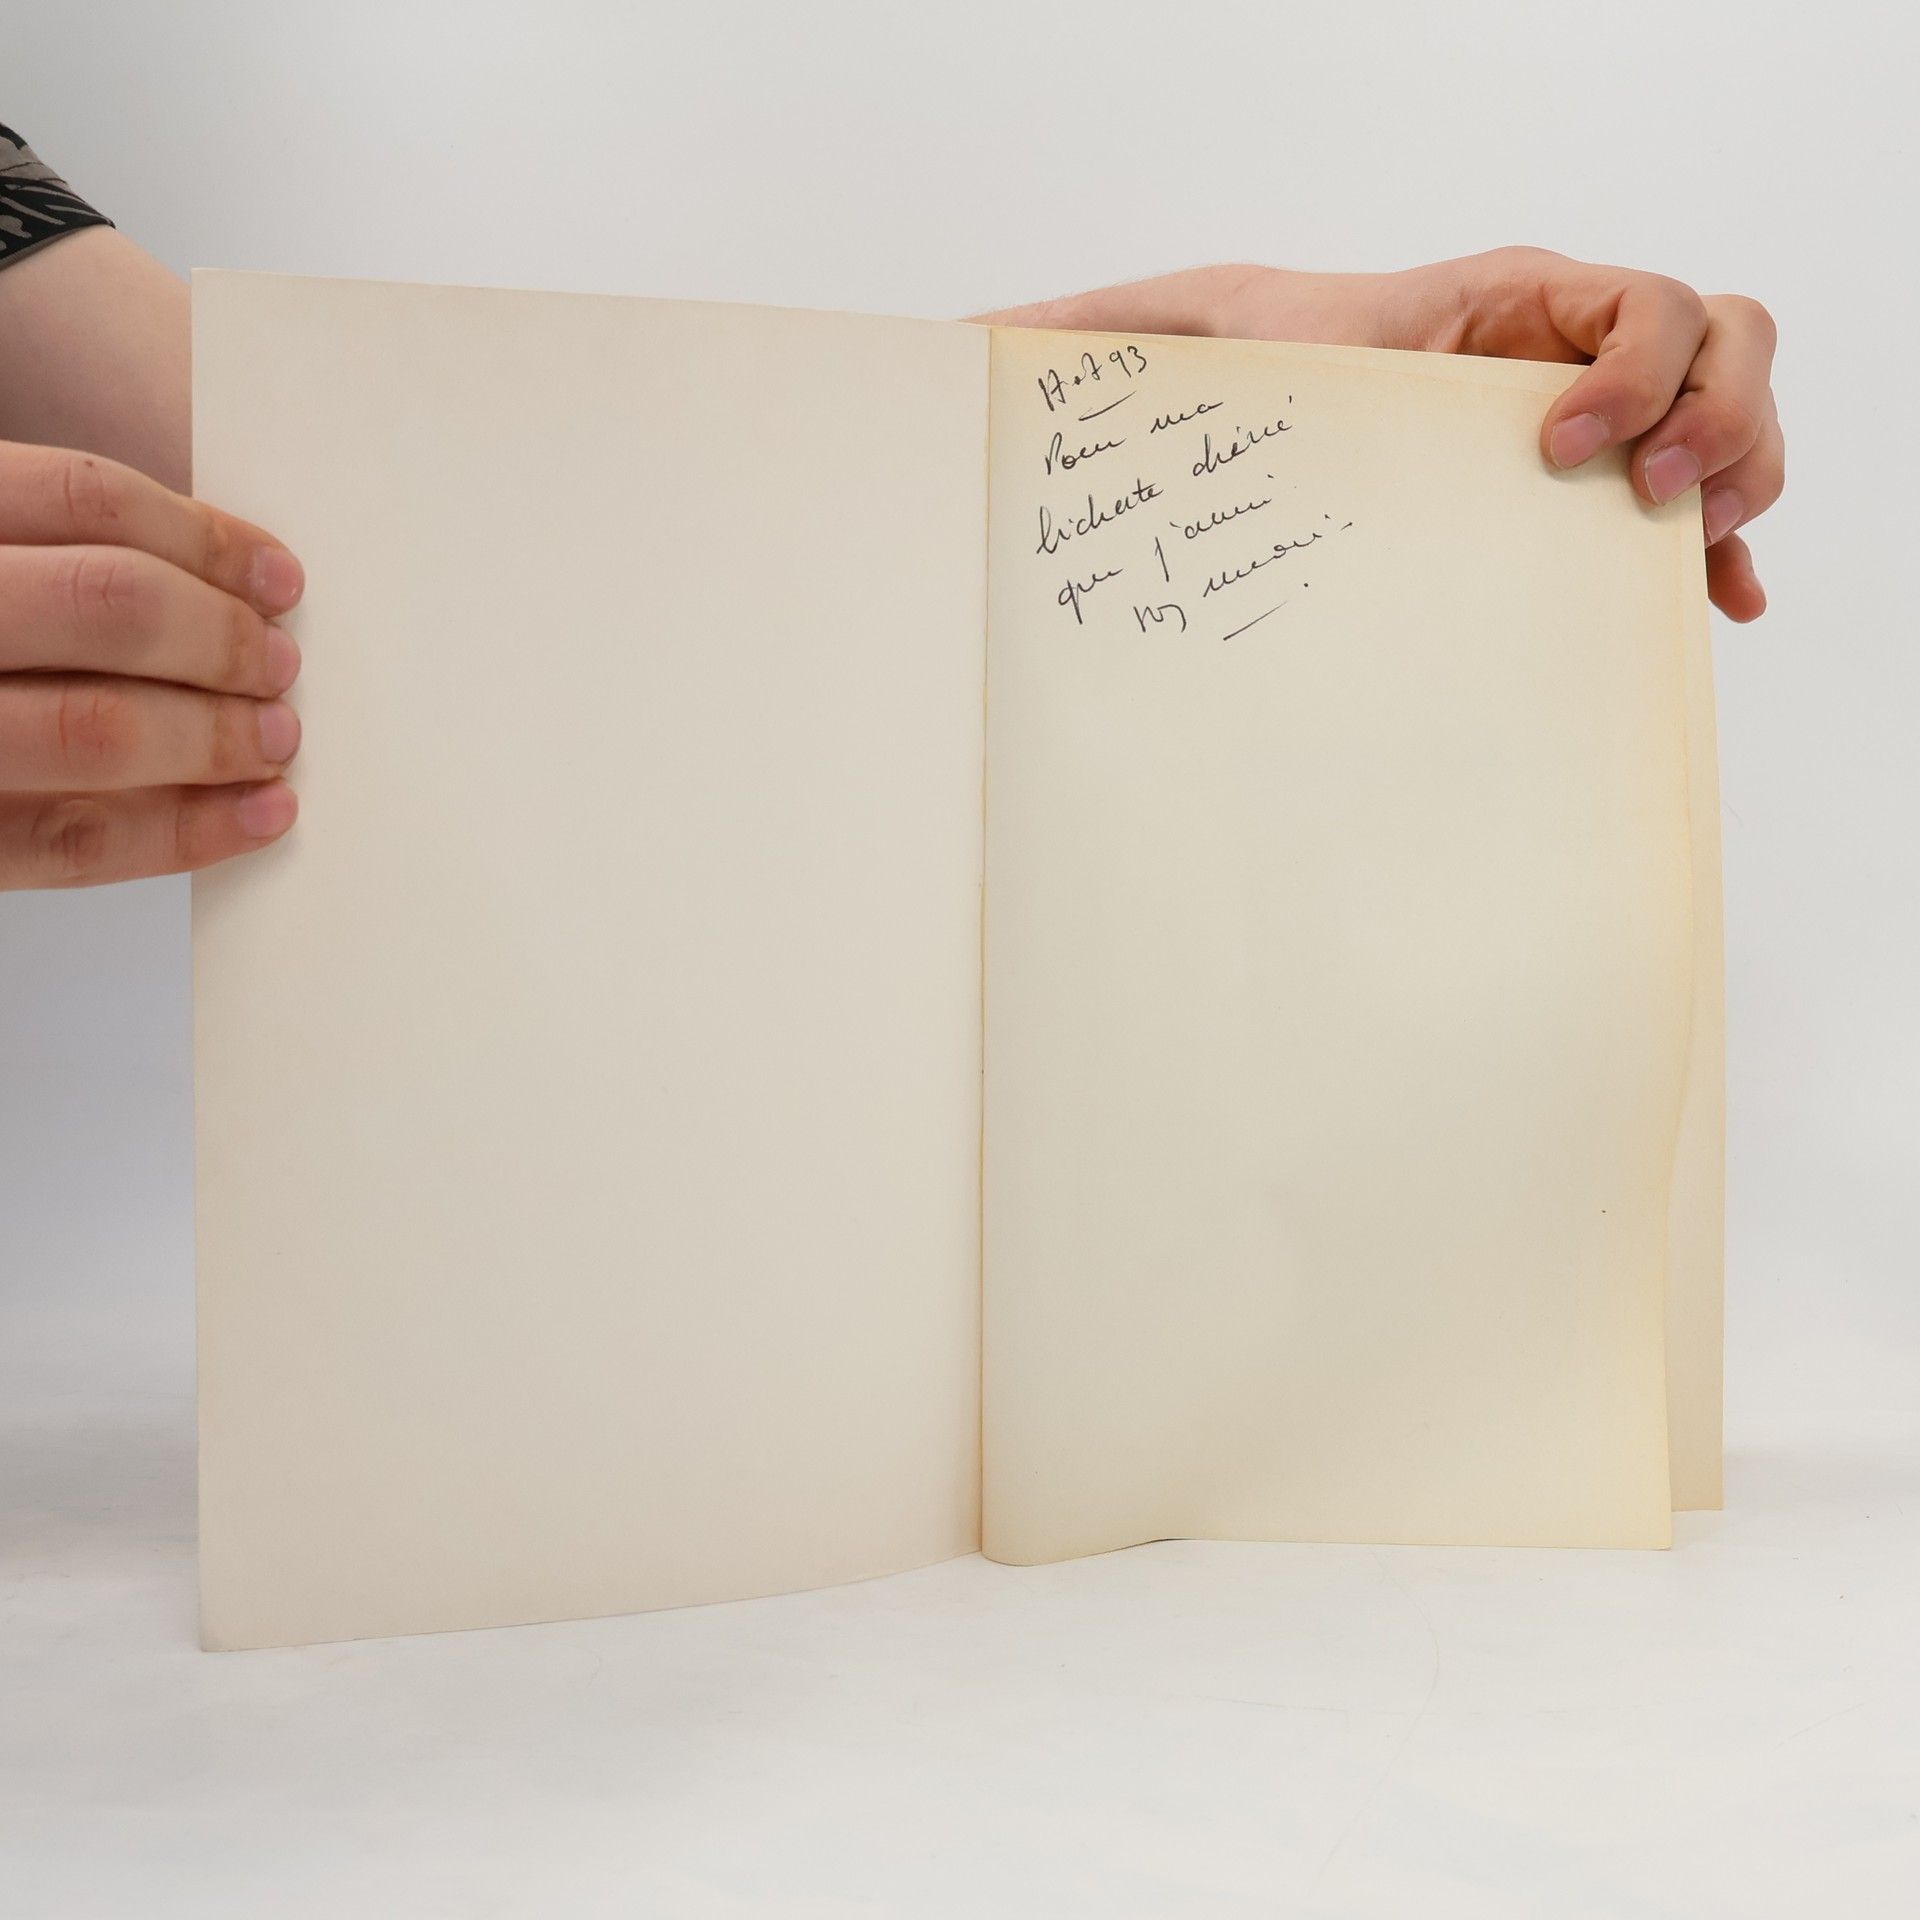 Août 93
Pour ma
bichette chérie
que j'aime
mari